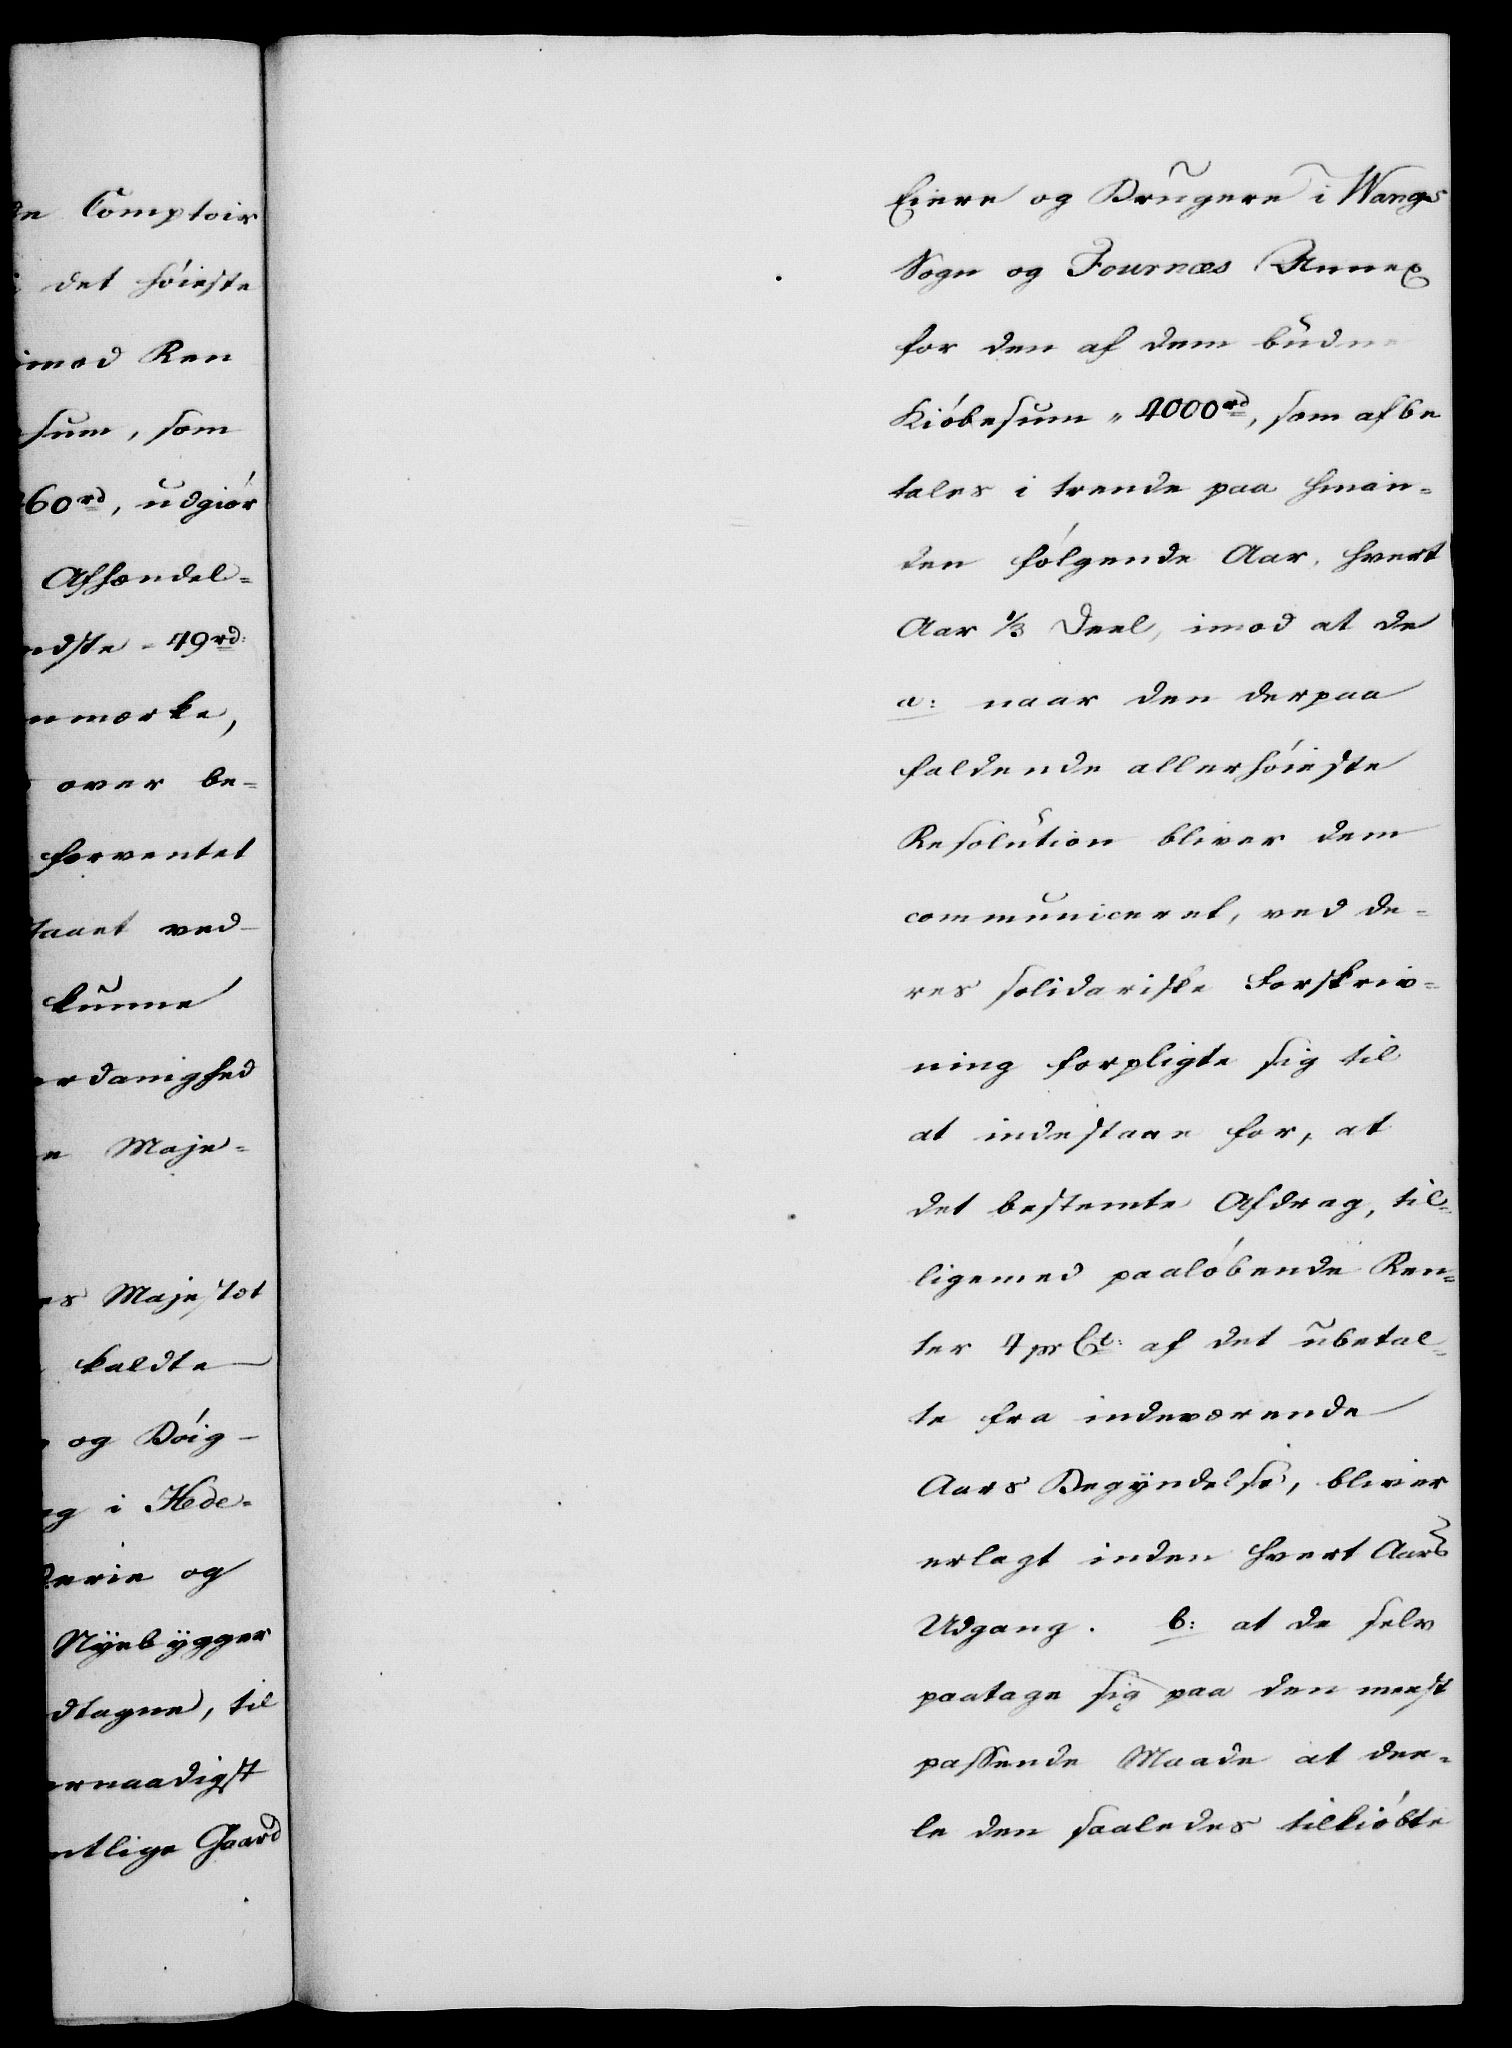 de Comptoir
det høieste
imod Ren
sum, som
60rd, udgiør
Afhændel=
edste - 49rd:
nmærke,
over be=
forventet
taaet ved-
kunne
erdanighed
e Maje=
es Majestæt
kaldte
og Døig-
g i Hede=
derie og
Nÿebÿgger
dtagne, til
ernaadigst
ntlige Gaard
Eiere og Brugere i Wangs
Sogn og Fournæs Annex
for den af dem budne
Kiøbesum " 4000rd, som afbe
tales i trende paa hinan=
den følgende Aar, hvert
Aar 1/3 Deel, imod at de
a: naar den derpaa
faldende allerhøieste
Resolution bliver dem
communiceret, ved de=
res solidariske Forskriv=
ning forpligte sig til
at indestaae for, at
det bestemte Afdrag, til=
ligemed paaløbende Ren=
ter 4 pr Ct: af det ubetal=
te fra indeværende
Aars Begÿndelse, bliver
erlagt inden hvert Aars
Udgang. b: at de selv
paatage sig paa den meest
passende Maade at dee=
le den saaledes tilkiøbte